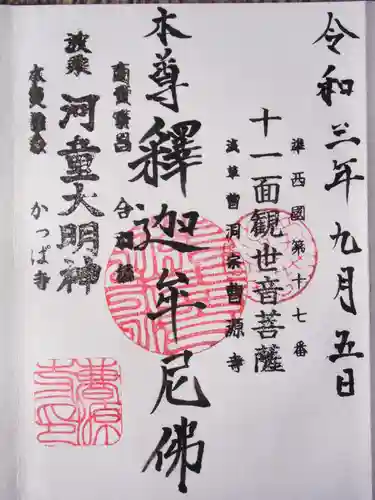 令和三年九月五日
準西國第十七番
十一面観世音菩薩
浅草曹洞宗曹源寺
本尊釋迦牟尼佛
商賣繁昌
河童大明神
波乗
かっぱ寺
曹源寺印